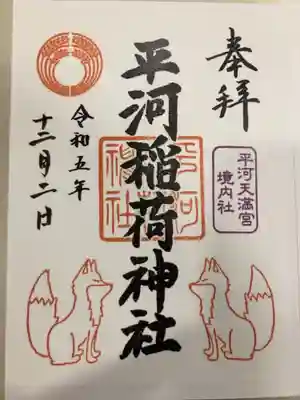 奉拝
平河天満宮
境内社
平河稲荷神社
令和五年
十二月二日